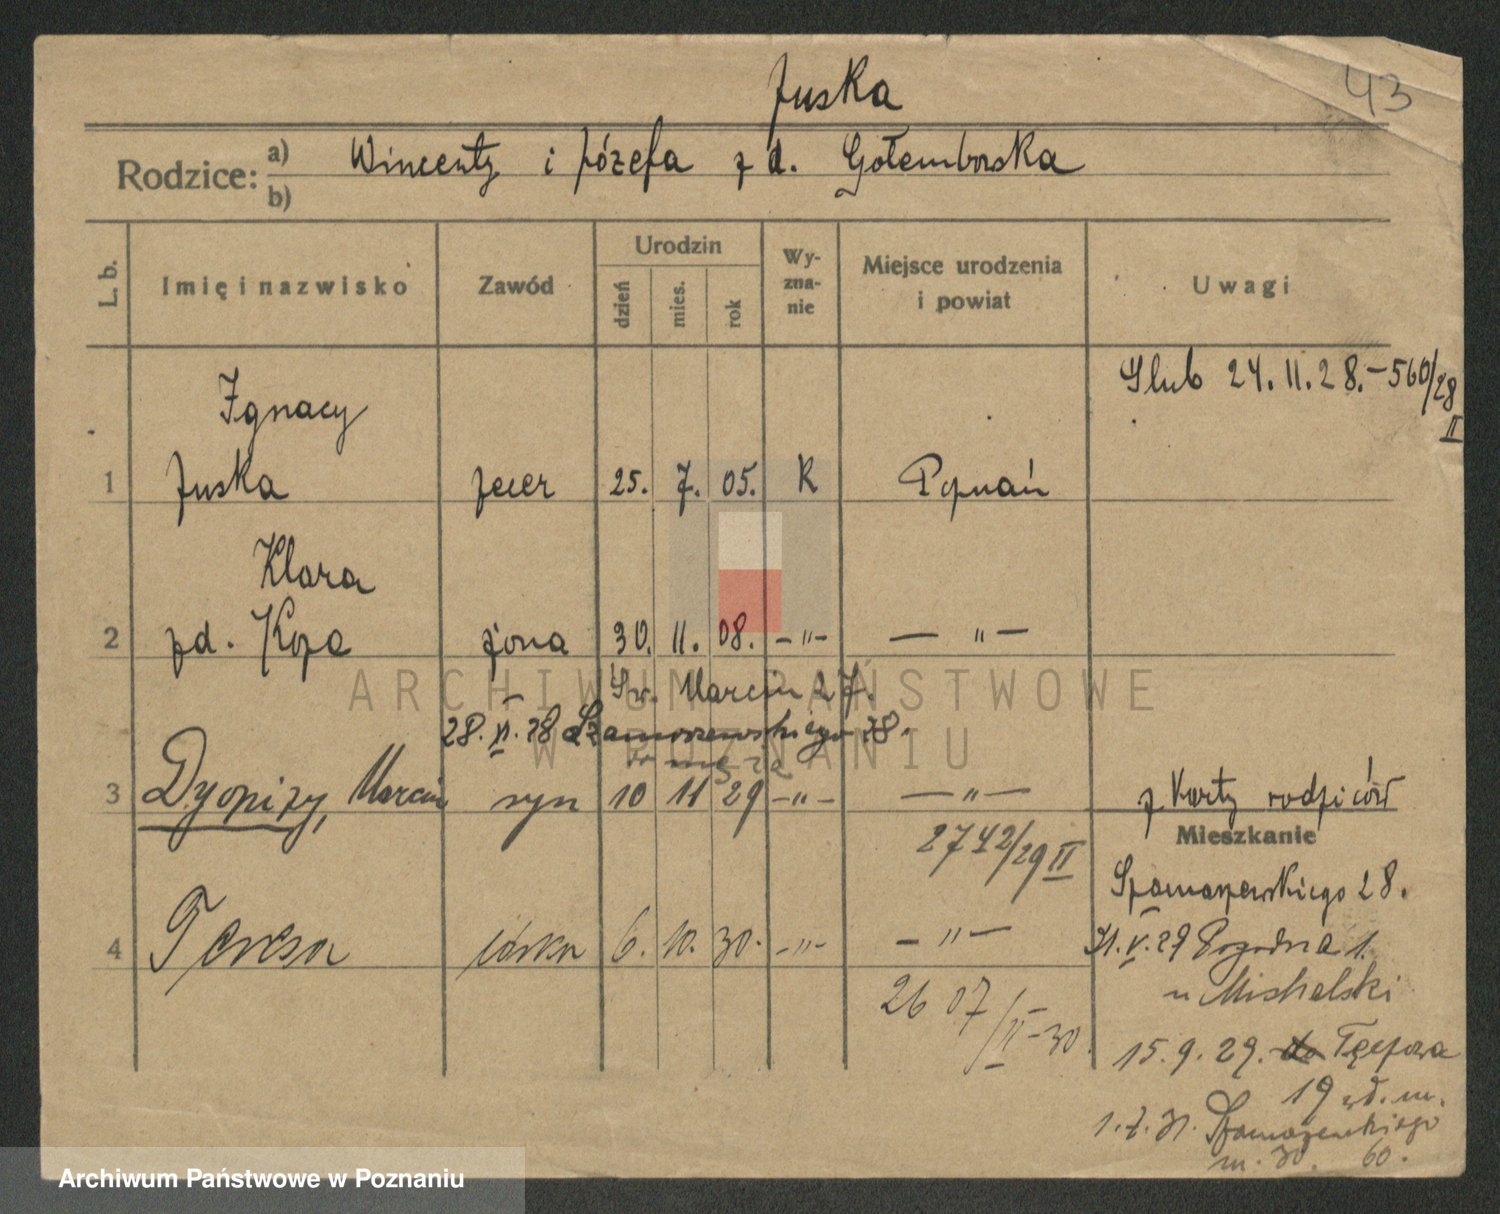 Juska
43
Rodzice: a) Wincenty i Józefa z d. Gołemborska
b)
L. b. Imię i nazwisko Zawód Urodzin dzień mies. rok Wyznanie Miejsce urodzenia i powiat Uwagi
Ślub 24. 11. 28. - 560/28
II
Ignacy
1 Juska zecer 25. 7. 05. K Poznań
Klara
2 zd. Kopa żona 30. 11. 08. -"- -"-
Św. Marcin 27.
28. VI. 28 Szamarzewskiego 28.
3 Dyonizy, Marcin syn 10 11 29 -"- -"- z karty rodziców
2742/29 II
Mieszkanie
Szamarzewskiego 28.
4 Teresa córka 6. 10. 30. -"- -"-
31. V. 29 Pogodna 1.
u Michalski
2607/II-30
15. 9. 29. do Tęczowa
19 wd. m.
1. 7. 31. Szamarzewskiego
m. 30. 60.
ARCHIWUM PAŃSTWOWE
W POZNANIU
Archiwum Państwowe w Poznaniu